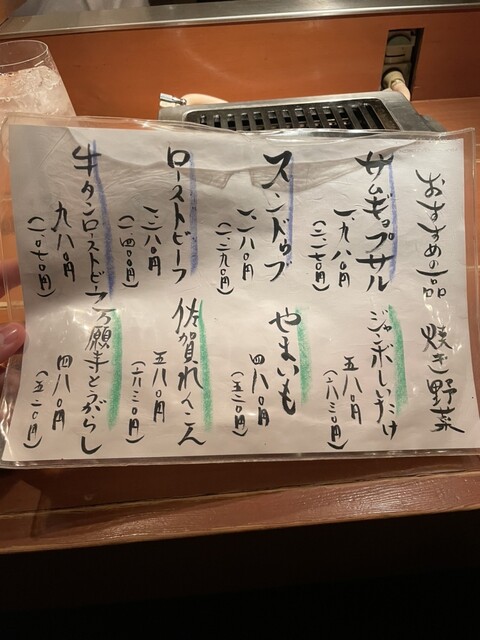 おすすめの一品
サムギョプサル
一、九八〇円
(二、一七〇円)
スンドゥブ
一、一八〇円
(一、二九〇円)
ローストビーフ
一、二八〇円
(一、四〇〇円)
牛タンローストビーフ
九八〇円
(一、〇七〇円)
焼き野菜
ジャンボしいたけ
五八〇円
(六三〇円)
やまいも
四八〇円
(五二〇円)
佐賀れんこん
五八〇円
(六三〇円)
万願寺とうがらし
四八〇円
(五二〇円)